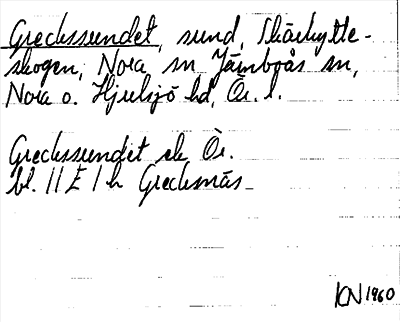 Greckssundet, sund, Skärhytte-
skogen, Nora sn Järnboås sn,
Nora o. Hjulsjö hd, Ör. l.
Greckssundet ek Ör.
bl. 11 E 1 h Grecksnäs
KN 1960